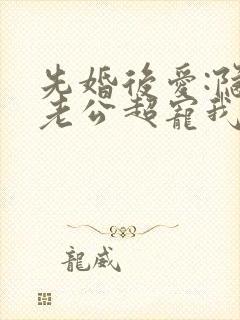 先婚後愛:隔
老公超寵我
龍威